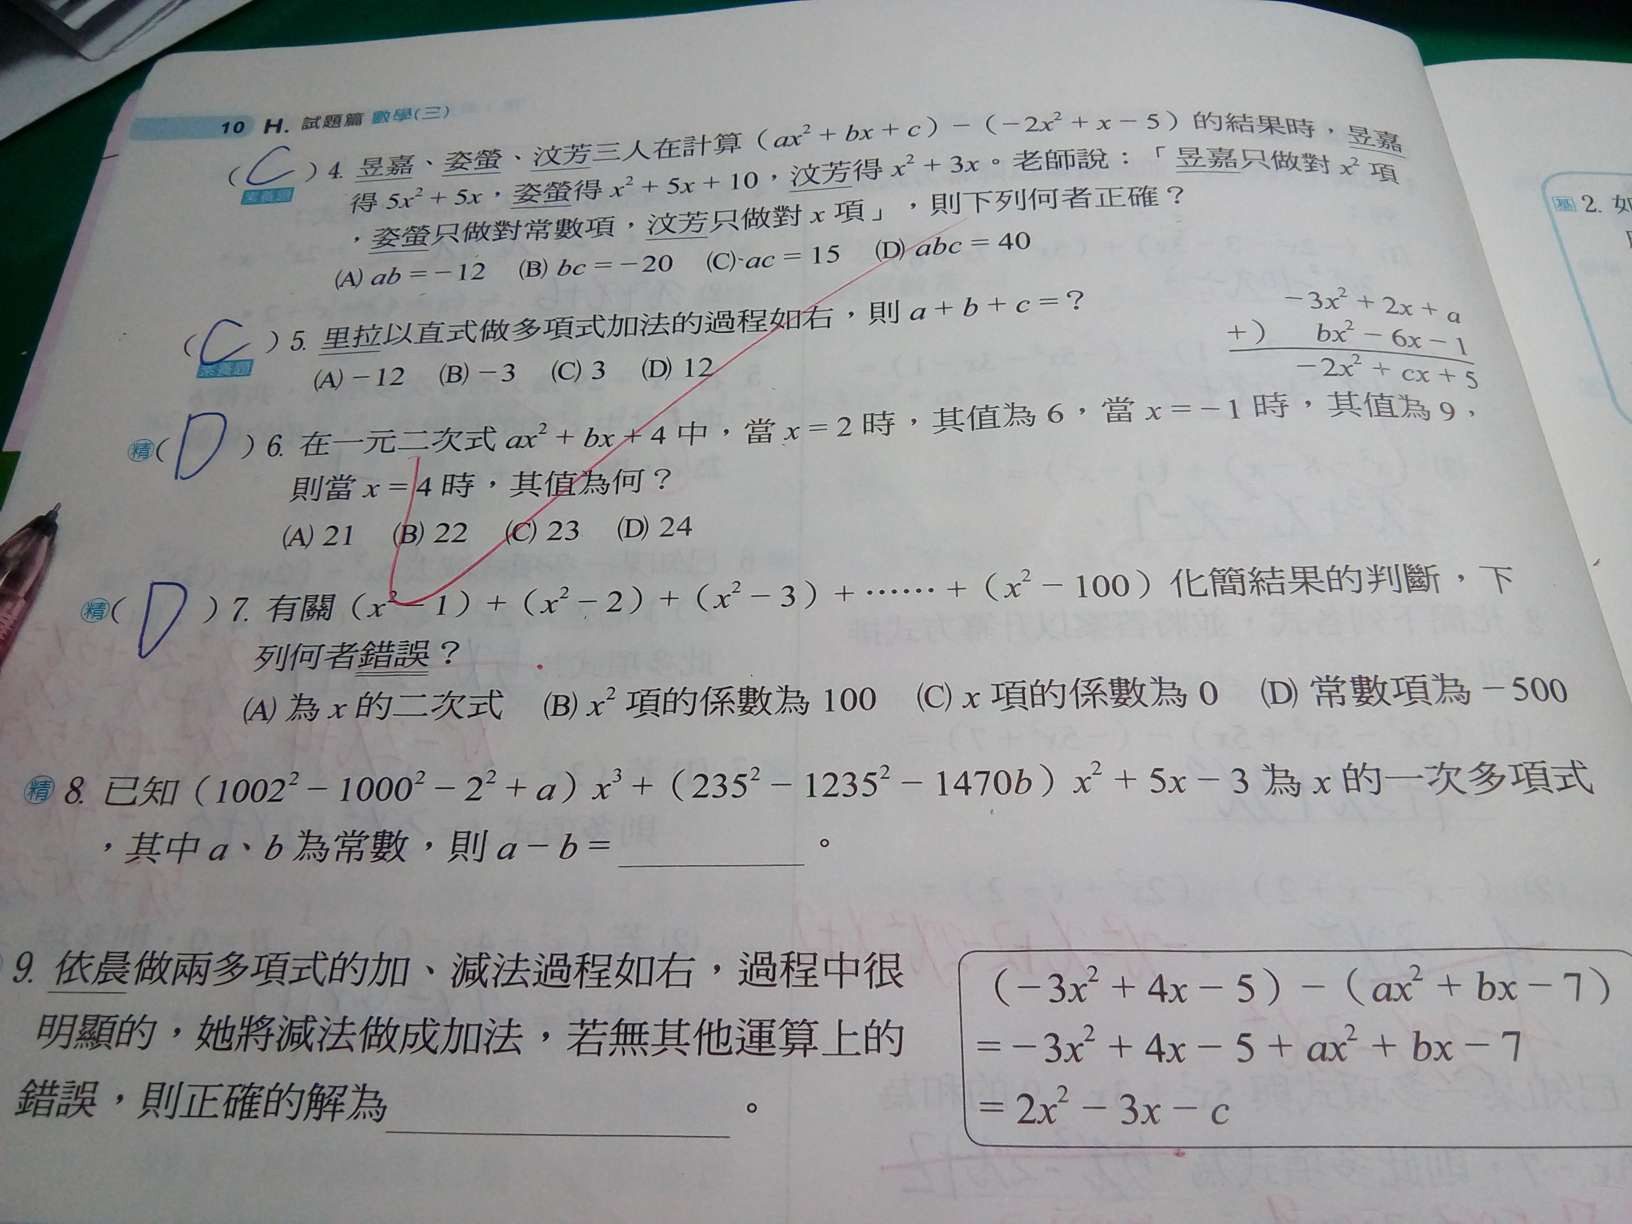 10 H. 試題篇 數學(三)
( C ) 4. 昱嘉、姿螢、汶芳三人在計算（ax² + bx + c）－（－2x² + x － 5）的結果時，昱嘉
素養題 得 5x² + 5x，姿螢得 x² + 5x + 10，汶芳得 x² + 3x。老師說：「昱嘉只做對 x² 項
，姿螢只做對常數項，汶芳只做對 x 項」，則下列何者正確？
(A) ab = －12 (B) bc = －20 (C) ac = 15 (D) abc = 40
( C ) 5. 里拉以直式做多項式加法的過程如右，則 a + b + c = ？
素養題 (A) －12 (B) －3 (C) 3 (D) 12
－3x² + 2x + a
+） bx² － 6x － 1
－2x² + cx + 5
精 ( D ) 6. 在一元二次式 ax² + bx + 4 中，當 x = 2 時，其值為 6，當 x = －1 時，其值為 9，
則當 x = 4 時，其值為何？
(A) 21 (B) 22 (C) 23 (D) 24
精 ( D ) 7. 有關（x² － 1）+（x² － 2）+（x² － 3）+ …… +（x² － 100）化簡結果的判斷，下
列何者錯誤？
(A) 為 x 的二次式 (B) x² 項的係數為 100 (C) x 項的係數為 0 (D) 常數項為 －500
精 8. 已知（1002² － 1000² － 2² + a）x³ +（235² － 1235² － 1470b）x² + 5x － 3 為 x 的一次多項式
，其中 a、b 為常數，則 a － b = ＿＿＿＿。
9. 依晨做兩多項式的加、減法過程如右，過程中很
明顯的，她將減法做成加法，若無其他運算上的
錯誤，則正確的解為＿＿＿＿＿＿＿＿。
（－3x² + 4x － 5）－（ax² + bx － 7）
= －3x² + 4x － 5 + ax² + bx － 7
= 2x² － 3x － c
基 2. 如